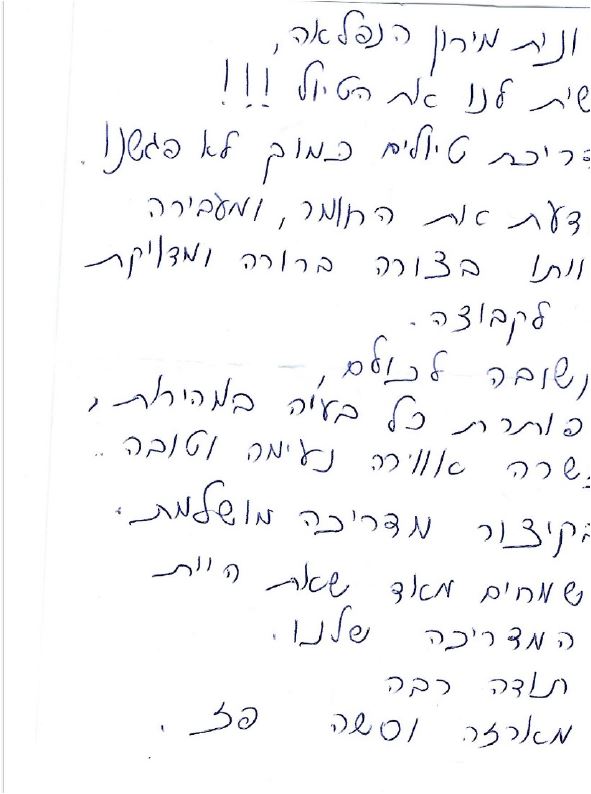 ונית מירון הנפלאה,
שית לנו את הטיול !!!
דריכת טיולים כמוך לא פגשנו.
דעת את החומר, ומעבירה
וותו בצורה ברורה ומדויקת
לקבוצה.
קשובה לכולם,
פותרת כל בעיה במהירות,
שרה אווירה נעימה וטובה..
בקיצור מדריכה מושלמת.
שמחים מאד שאת היית
המדריכה שלנו.
תודה רבה
מארזה וסשה פז.